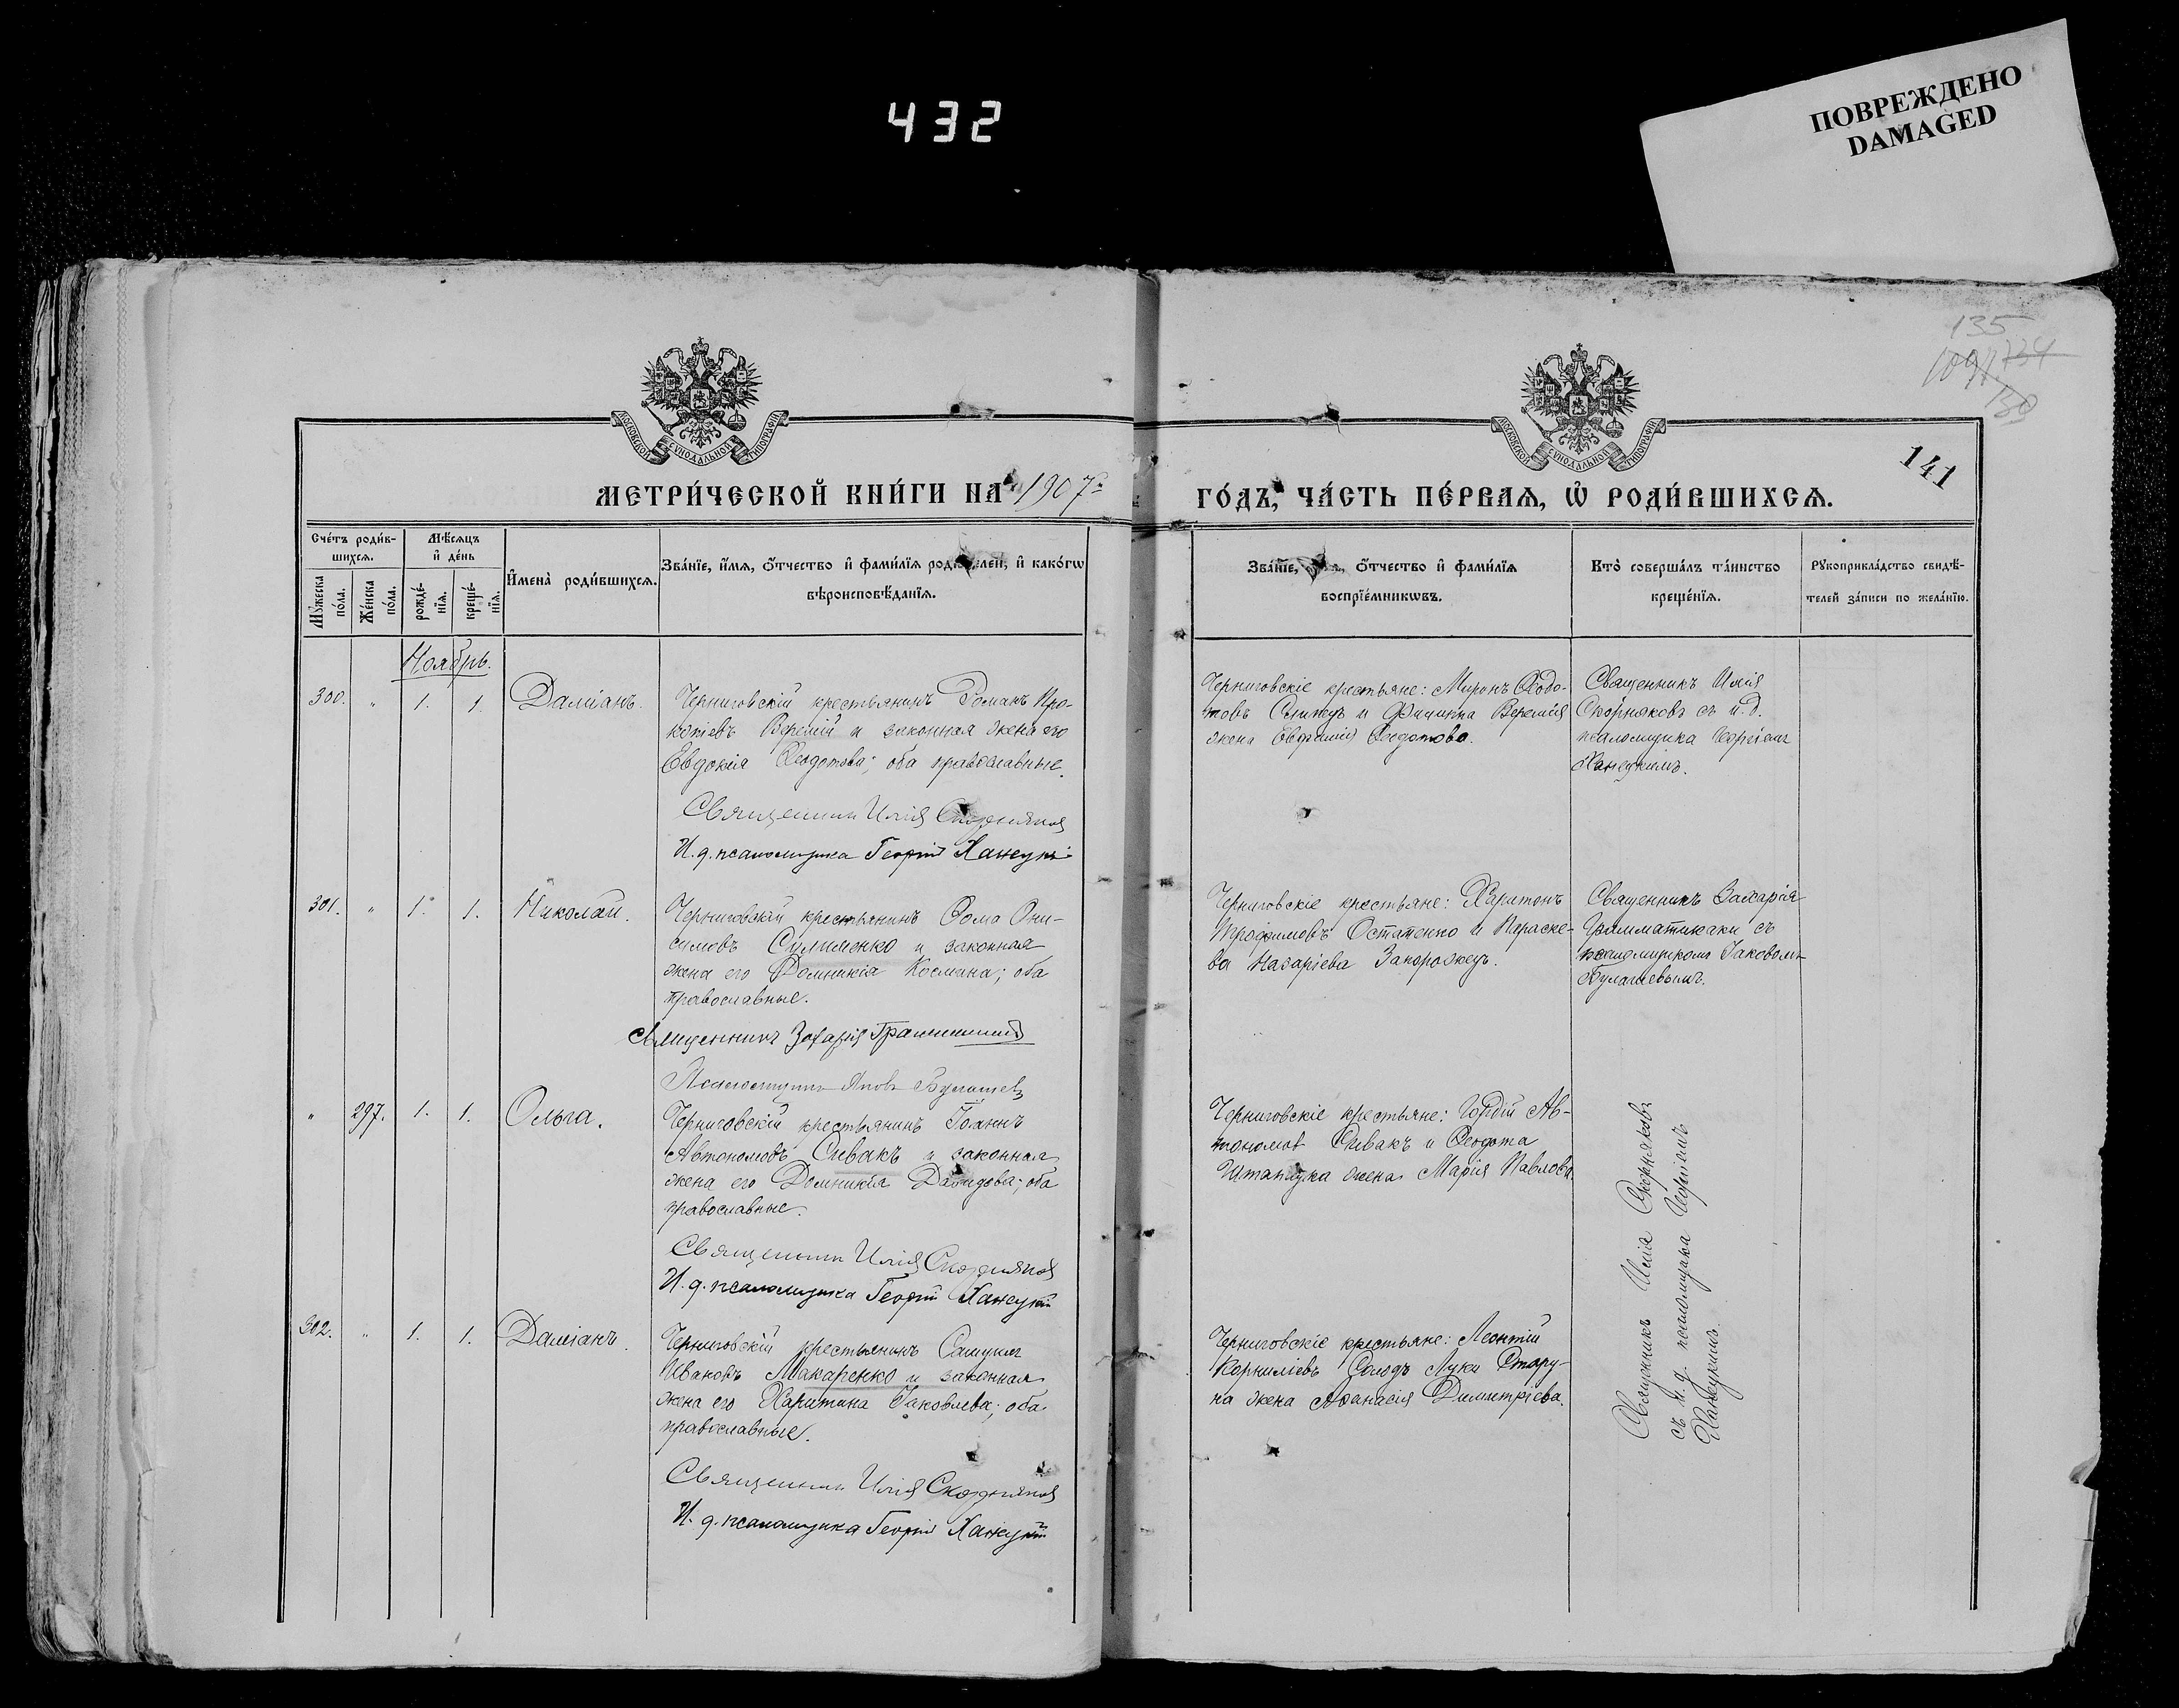 432
ПОВРЕЖДЕНО
DAMAGED
135
134
141
МОСКОВСКОЙ СѴНОДАЛЬНОЙ ТИПОГРАФІИ
МОСКОВСКОЙ СѴНОДАЛЬНОЙ ТИПОГРАФІИ
МЕТРИ́ЧЕСКОЙ КНИ́ГИ НА 1907й
ГО́ДЪ, ЧА́СТЬ ПЕ́РВАѦ, Ѡ҆ РОДИ́ВШИХСѦ.
Сче́тъ роди́в-
шихсѧ.
Мꙋ́жеска по́ла.
Же́нска по́ла.
Мѣ́сѧцъ
и҆ де́нь
рожде́-
нїѧ.
креще́-
нїѧ.
И҆мена̀ роди́вшихсѧ.
Зва́нїе, и҆́мѧ, ѻ҆́тчество и҆ фами́лїѧ роди́телей, и҆ како́гѡ
вѣроисповѣ́данїѧ.
Зва́нїе, ѻ҆́тчество и҆ фами́лїѧ
воспрїе́мникѡвъ.
Кто̀ соверша́лъ та́инство
креще́нїѧ.
Рꙋкоприкла́дство свидѣ́-
телей за́писи по жела́нїю.
Ноябрь.
300. " 1. 1. Даміанъ.
Черниговскій крестьянинъ Романъ Про-
копіевъ Веремій и законная жена его
Евдокія Ѳеодотова; оба православные.
Священникъ Илія Скорняковъ
И. д. псаломщика Георгій Ханецкій
Черниговскіе крестьяне: Миронъ Ѳеодо-
товъ и Филиппа Веремія
жена Евфимія Ѳеодотова.
Священникъ Илія
Скорняковъ съ и. д.
псаломщика Георгіемъ
Ханецкимъ.
301. " 1. 1. Николай.
Черниговскій крестьянинъ Ѳома Они-
симовъ Силименко и законная
жена его Домникія Космина; оба
православные.
Священникъ Захарія
Псаломщикъ Яковъ Булашевъ
Черниговскіе крестьяне: Харитонъ
Трофимовъ Остапенко и Параске-
ва Назаріева Запорожецъ.
Священникъ Захарія
съ
псаломщикомъ Іаковомъ
Булашевымъ.
" 297. 1. 1. Ольга.
Черниговскій крестьянинъ Іоаннъ
Автономовъ Сивакъ и законная
жена его Домникія Давидова; оба
православные.
Священникъ Илія Скорняковъ
И. д. псаломщика Георгій Ханецкій
Черниговскіе крестьяне: Гордій Ав-
тономовъ Сивакъ и Ѳеодота
жена Марія Павлова.
302. " 1. 1. Даміанъ.
Черниговскій крестьянинъ Самуилъ
Ивановъ Макаренко и законная
жена его Харитина Іаковлева; оба
православные.
Священникъ Илія Скорняковъ
И. д. псаломщика Георгій Ханецкій
Черниговскіе крестьяне: Леонтій
Корниліевъ Солодъ Луки Стару-
на жена Аѳанасія Димитріева.
Священникъ Илія Скорняковъ
съ и. д. псаломщика Георгіемъ
Ханецкимъ.